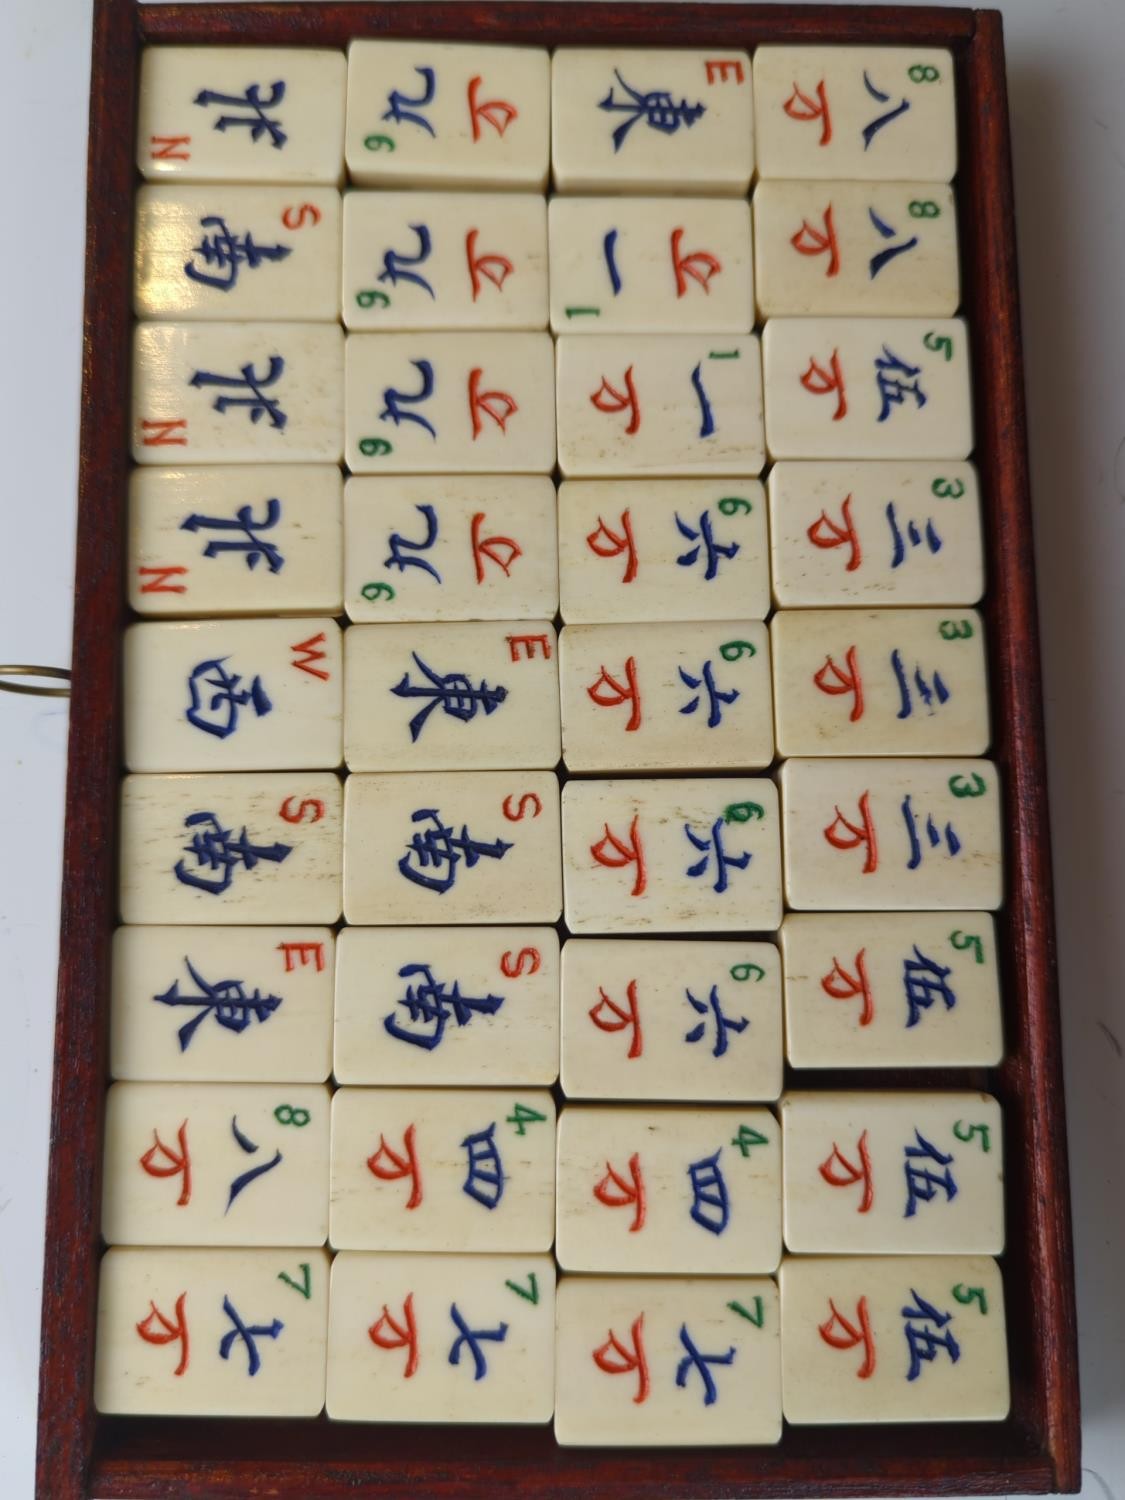 N 北
九 万 9
E 東
8 八 万
S 南
九 万 9
一 万 1
8 八 万
N 北
九 万 9
1 一 万
5 伍 万
N 北
九 万 9
6 六 万
3 三 万
W 西
E 東
6 六 万
3 三 万
S 南
S 南
6 六 万
3 三 万
E 東
S 南
6 六 万
5 伍 万
8 八 万
4 四 万
4 四 万
5 伍 万
7 七 万
7 七 万
7 七 万
5 伍 万